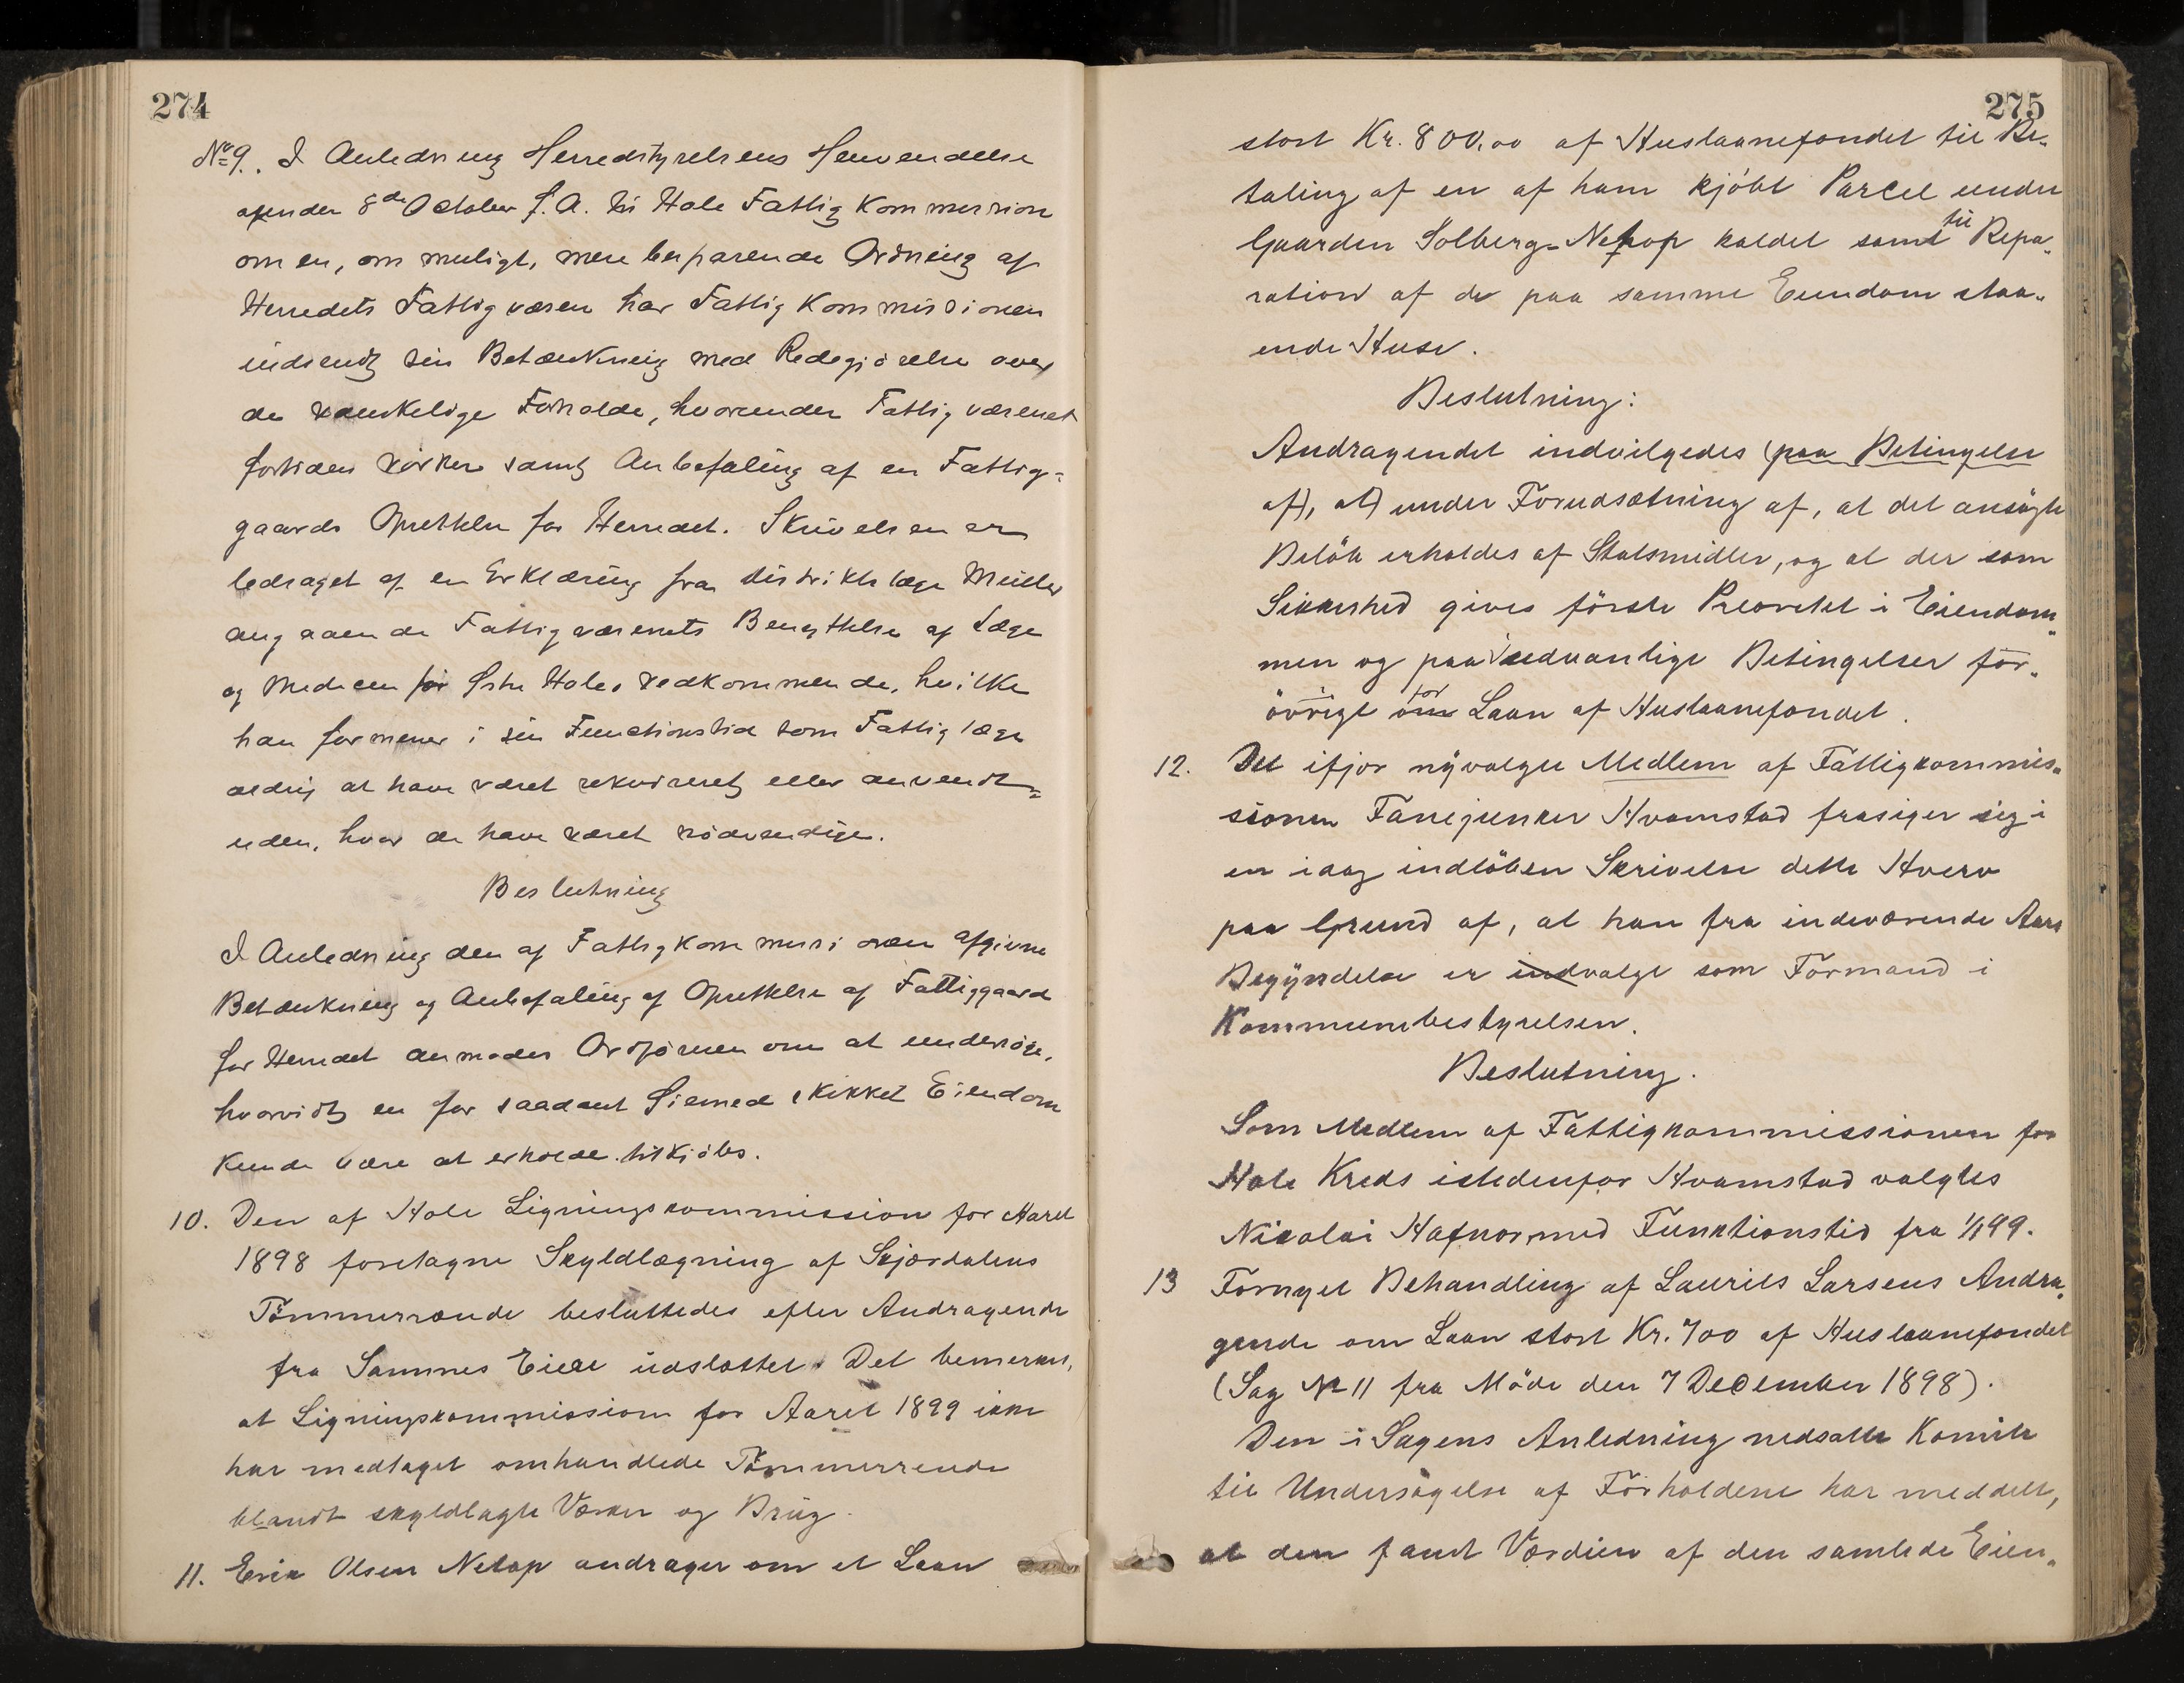 274
No 9. I Anledning Herredstyrelsens Henvendelse
af under 8de October f. A. til Hole Fattig Kommission
om en, om muligt, mere besparende Ordning af
Herredets Fattigvæsen har Fattig Kommissionen
indsendt sin Betænkning med Redegjörelse over
de vanskelige Forholde, hvorunder Fattigvæsenet
fortiden virker samt Anbefaling af en Fattig=
gaards Oprettelse for Herredet. Skrivelsen er
ledsaget af en Erklæring fra Distriktslæge Müller
angaaende Fattigvæsenets Benyttelse af Læge
og Medicin for Östre Holes Vedkommende, hvilke
han formener i sin Functionstid som Fattiglæge
aldrig at have været rekvireret eller anvendt=
uden, hvor de have været nödvendige.
Beslutning
I Anledning den af Fattigkommissionen afgivne
Betænkning og Anbefaling af Oprettelse af Fattiggaard
for Herredet anmodes Ordföreren om at undersöge,
hvorvidt en for saadant Öiemed skikket Eiendom
kunde være at erholde tilkjöbs.
10. Den af Hole Ligningskommission for Aaret
1898 foretagne Skyldlægning af Skjærdalens
Tömmerrænde besluttedes efter Andragende
fra Sammes Eiere udslettet. Det bemerkes,
at Ligningskommission for Aaret 1899 ikke
har medtaget omhandlede Tömmerrende
blandt skyldlagte Værker og Brug.
11. Erik Olsen Netop andrager om et Laan
275
stort Kr. 800,00 af Huslaanefondet til Be„
taling af en af ham kjöbt Parcel under
Gaarden Solberg- Netop kaldet samt til Repa„
ration af de paa samme Eiendom staa„
ende Huse.
Beslutning:
Andragendet indvilgedes (paa Betingelse
af), at) under Forudsætning af, at det ansögte
Belöb erholdes af Statsmidler, og at der som
Sikkerhed gives förste Prioritet i Eiendom„
men og paa sedvanlige Betingelser for„
övrigt om for Laan af Huslaanefondet.
12. Det ifjor nyvalgte Medlem af Fattigkommis„
sionen Fanejunker Hvamstad frasiger sig i
en idag indlöben Skrivelse dette Hverv
paa Grund af, at han fra indeværende Aars
Begyndelse er indvalgt som Formand i
Kommunebestyrelsen.
Beslutning.
Som Medlem af Fattigkommissionen for
Hole Kreds istedenfor Hvamstad valgtes
Nicolai Hafnor, med Funktionstid fra 1/1 99.
13 Fornyet Behandling af Laurits Larsens Andra„
gende om Laan stort Kr. 700 af Huslaanefondet
(Sag No 11 fra Möde den 7 December 1898).
Den i Sagens Anledning nedsatte Komite
til Undersögelse af Forholdene har meddelt,
at den fandt Værdien af den samlede Eien„